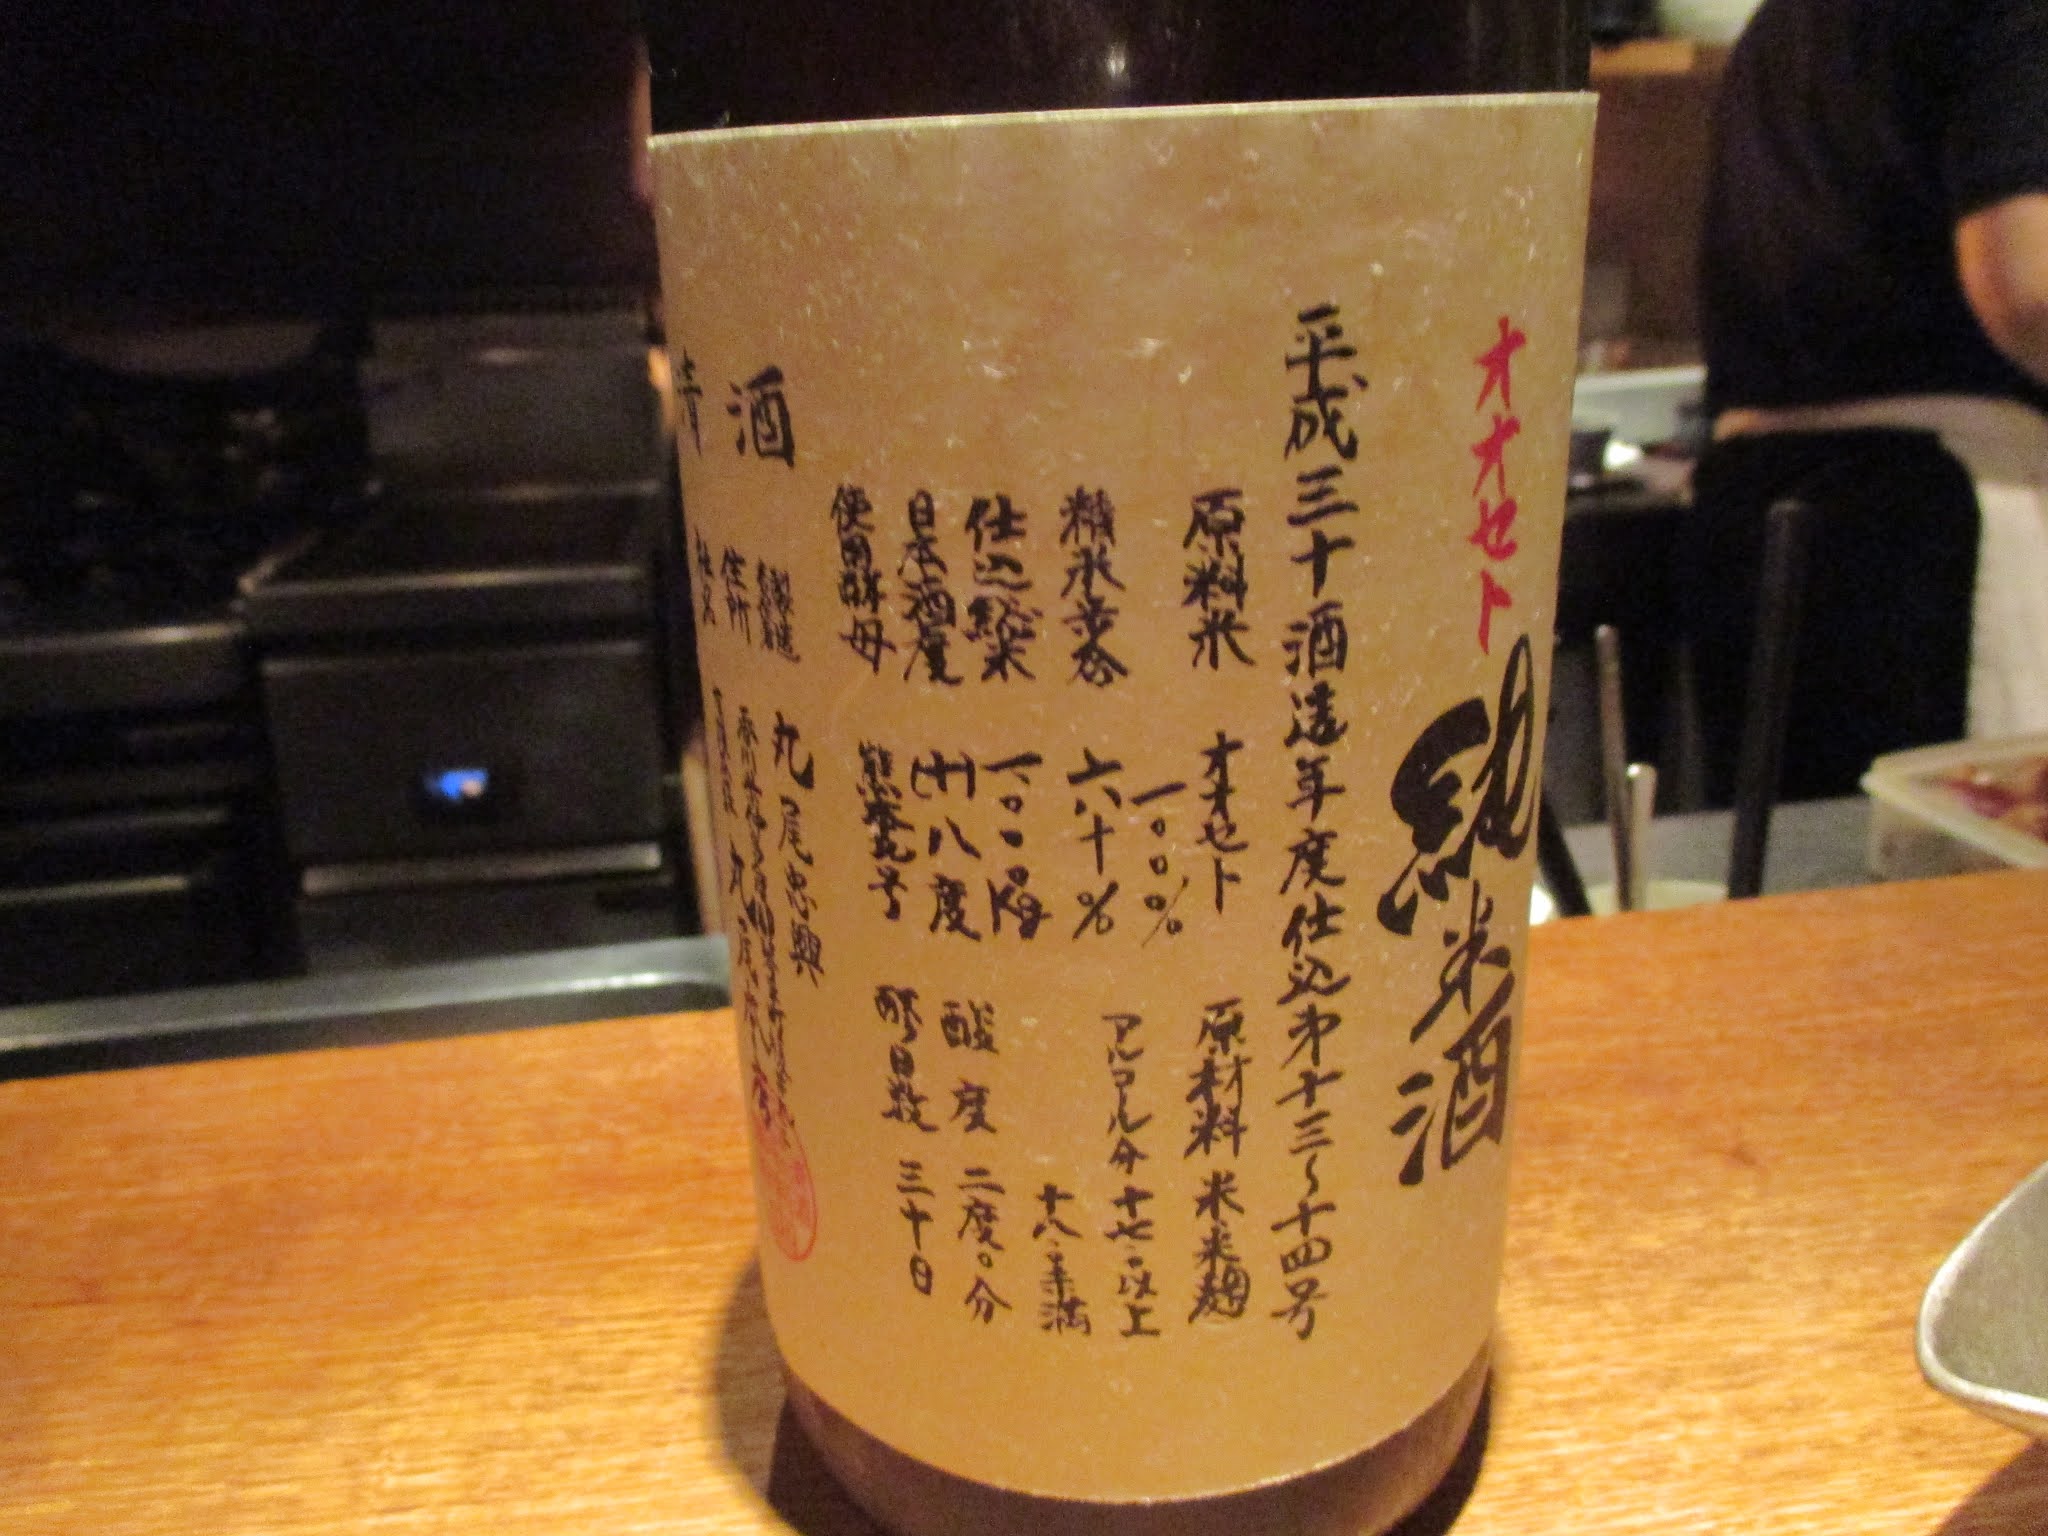 オオセト 純米酒
平成三十酒造年度仕込第十三〜十四号
原料米 オオセト 一〇〇%
原材料 米米麹
精米歩合 六十八%
アルコール分 十七.〇以上 十八.〇未満
仕込総米 一.〇〇〇Kg
日本酒度 (+)八度
酸度 二度〇分
使用酵母 熊本九号
醪日数 三十日
清酒
醸造 丸尾忠興
住所